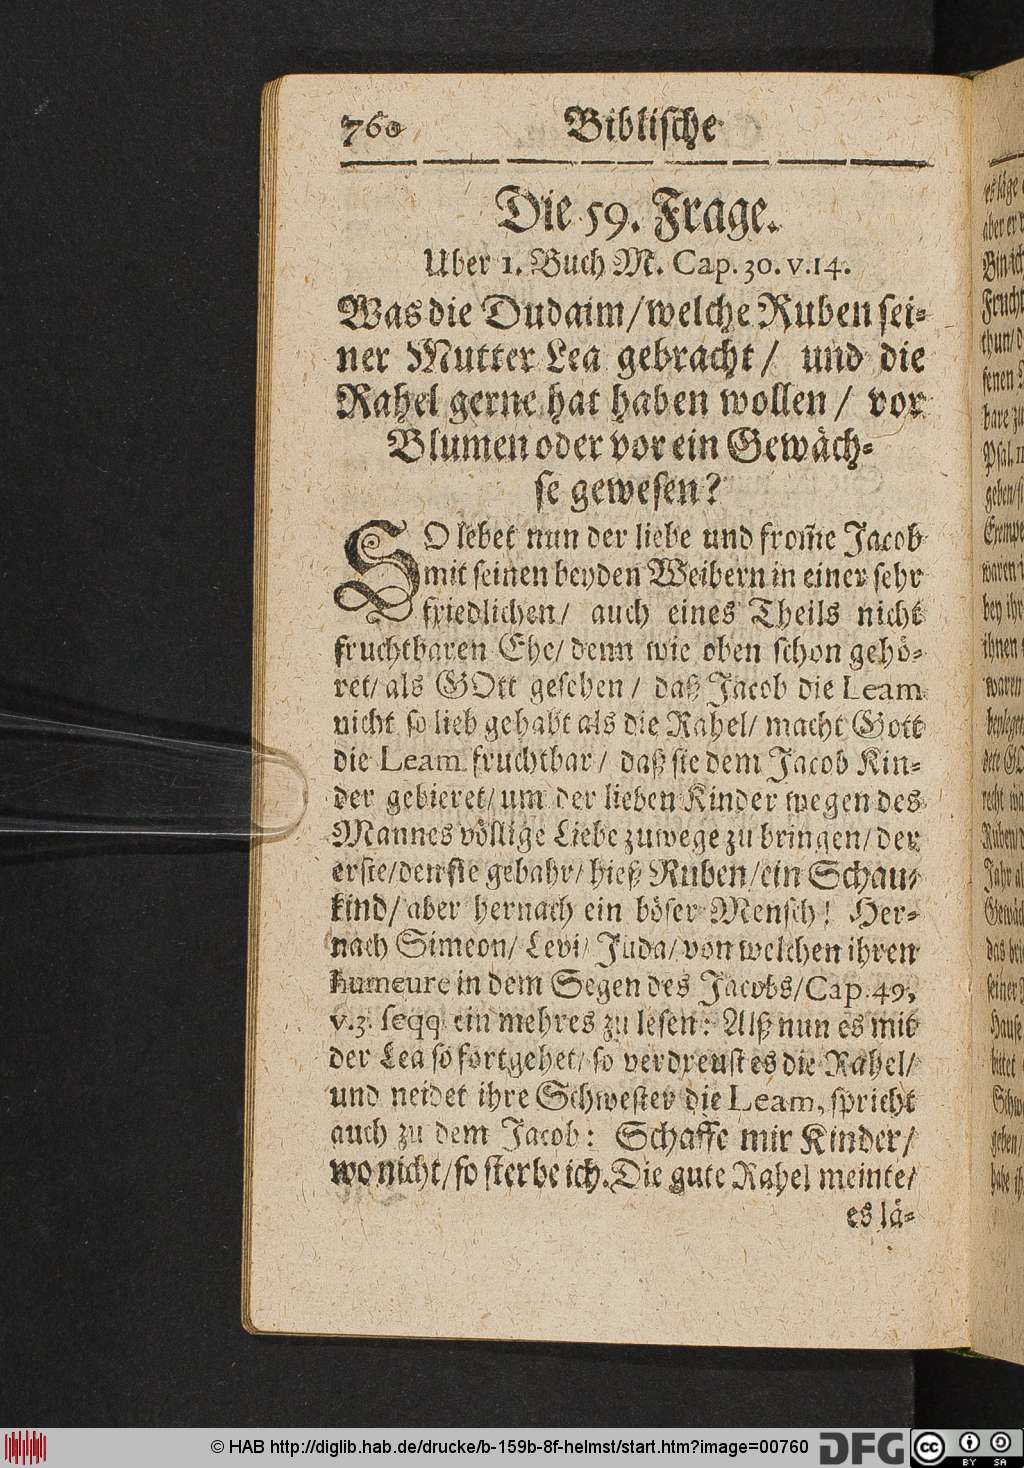 760 Biblische
Die 59. Frage.
Uber 1. Buch M. Cap. 30. v. 14.
Was die Dudaim/welche Ruben sei-
ner Mutter Lea gebracht/ und die
Rahel gerne hat haben wollen/ vor
Blumen oder vor ein Gewäch-
se gewesen?
SO lebet nun der liebe und from̃e Jacob
mit seinen beyden Weibern in einer sehr
friedlichen/ auch eines Theils nicht
fruchtbaren Ehe/ denn wie oben schon gehö-
ret/ als GOtt gesehen/ daß Jacob die Leam
nicht so lieb gehabt als die Rahel/ macht Gott
die Leam fruchtbar/ daß sie dem Jacob Kin-
der gebieret/ um der lieben Kinder wegen des
Mannes völlige Liebe zuwege zu bringen/ der
erste/ den sie gebahr/ hieß Ruben/ ein Schau-
kind/ aber hernach ein böser Mensch! Her-
nach Simeon/ Levi/ Juda/ von welchen ihren
humeure in dem Segen des Jacobs/ Cap. 49,
v. 3. seqq. ein mehres zu lesen: Alß nun es mit
der Lea so fortgehet/ so verdreust es die Rahel/
und neidet ihre Schwester die Leam, spricht
auch zu dem Jacob: Schaffe mir Kinder/
wo nicht/ so sterbe ich. Die gute Rahel meinte/
es lä-
© HAB http://diglib.hab.de/drucke/b-159b-8f-helmst/start.htm?image=00760
DFG
cc BY SA